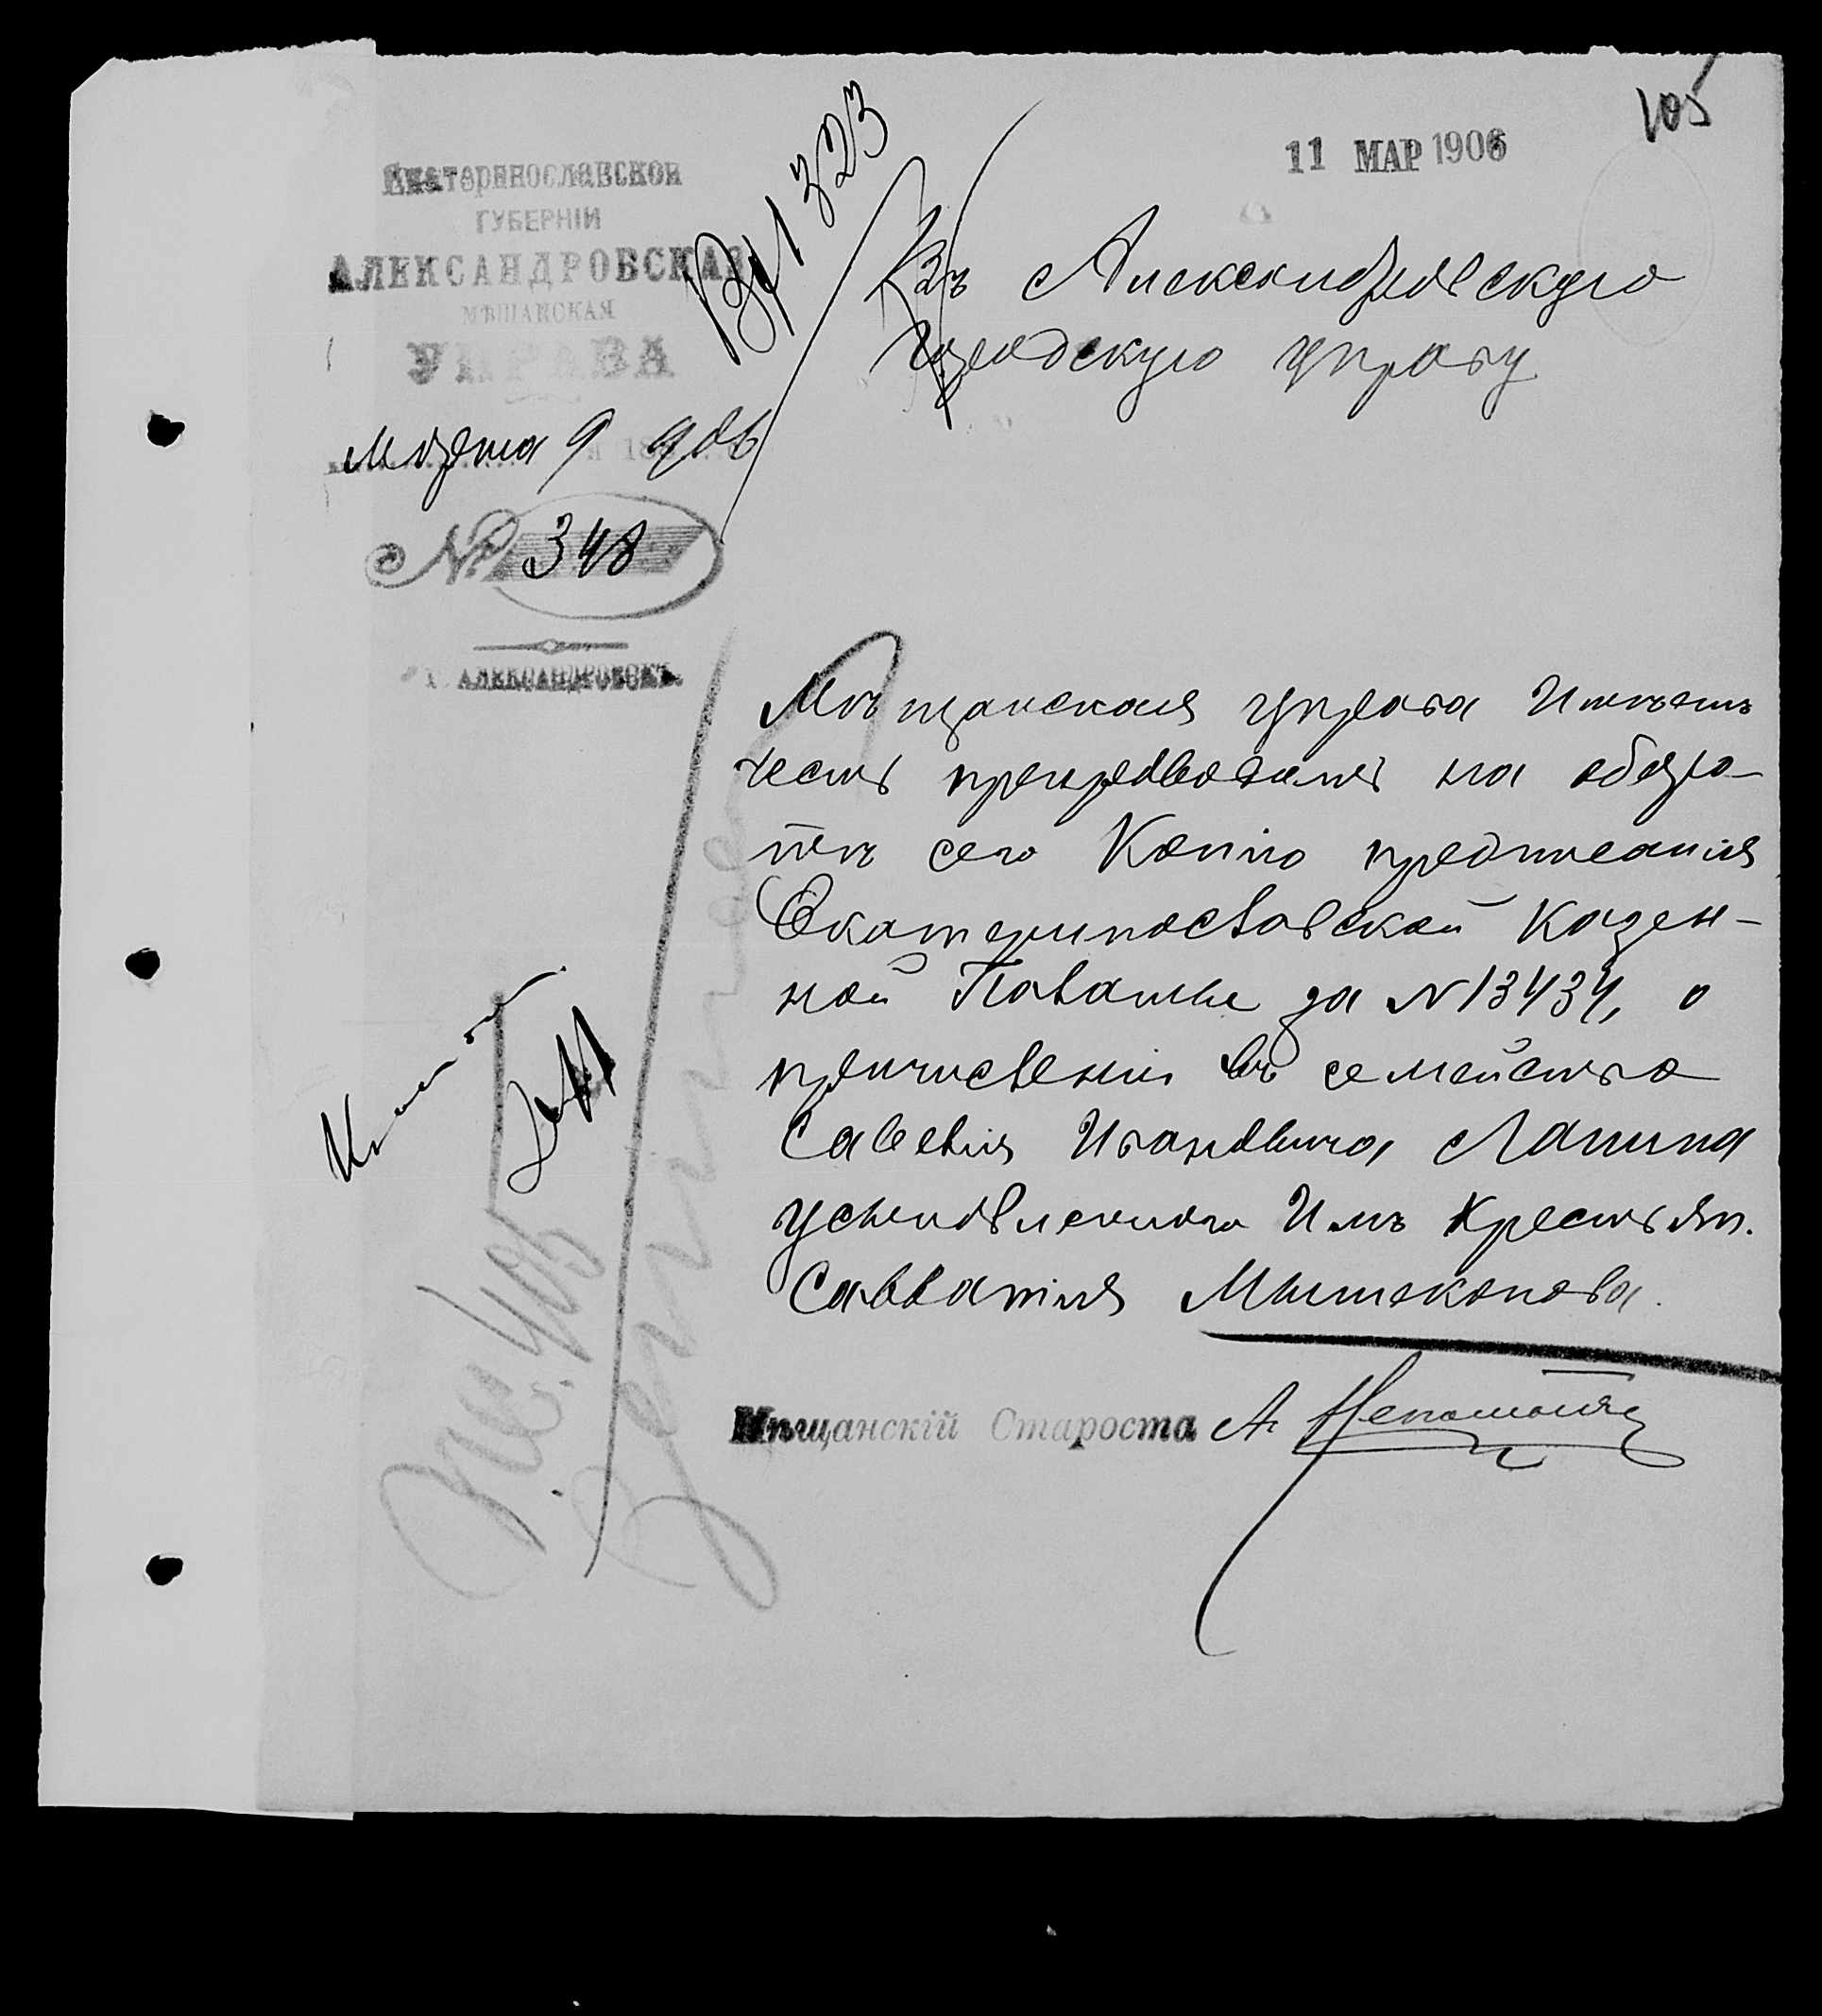 105
11 МАР 1906
Екатеринославской
ГУБЕРНІИ
АЛЕКСАНДРОВСКАЯ
МѢЩАНСКАЯ
УПРАВА
Марта 9 906
№ 348
Г. АЛЕКСАНДРОВСКЪ.
Вх 1323
Въ Александровскую
Городскую управу
Мѣщанская управа Имѣетъ
честь препроводить на обзро-
тѣ сего Копію предписанія
Екатеринославской Казен-
ной Палаты за N 13434, о
причисленіи въ семейство
Савелія Ивановича Лапина
усыновленнаго Имъ Крестьян.
Савватія Мышаконова.
Мѣщанскій Староста А.